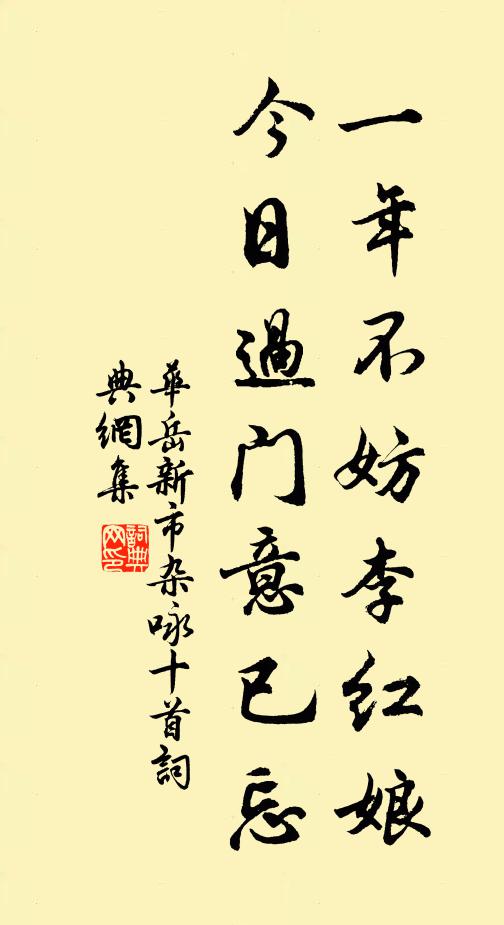 一年不妨李红娘
今日過门意已忘
華岳新市杂咏十首詞
典網集
詞典
网印